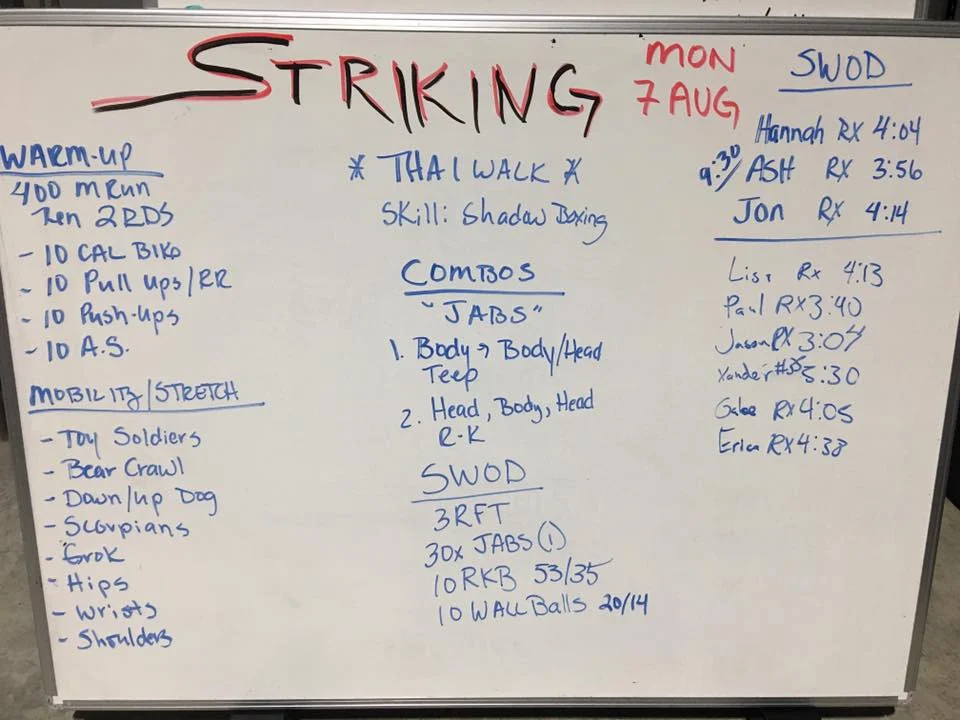 STRIKING
MON
7 AUG
WARM-UP
400 m Run
Then 2 RDS
- 10 CAL BIKE
- 10 Pull Ups/RR
- 10 Push-Ups
- 10 A.S.
MOBILITY/STRETCH
- Toy Soldiers
- Bear Crawl
- Down/Up Dog
- Scorpians
- Grok
- Hips
- Wrists
- Shoulders
* THAI WALK *
Skill: Shadow Boxing
COMBOS
"JABS"
1. Body → Body/Head
Teep
2. Head, Body, Head
R-K
SWOD
3 RFT
30x JABS (1)
10 RKB 53/35
10 WALL Balls 20/14
SWOD
Hannah RX 4:04
9:30/ ASH RX 3:56
Jon RX 4:14
Lisa Rx 4:13
Paul RX 3:40
Jason RX 3:04
Xander #35 5:30
Gabe RX 4:05
Erica RX 4:38